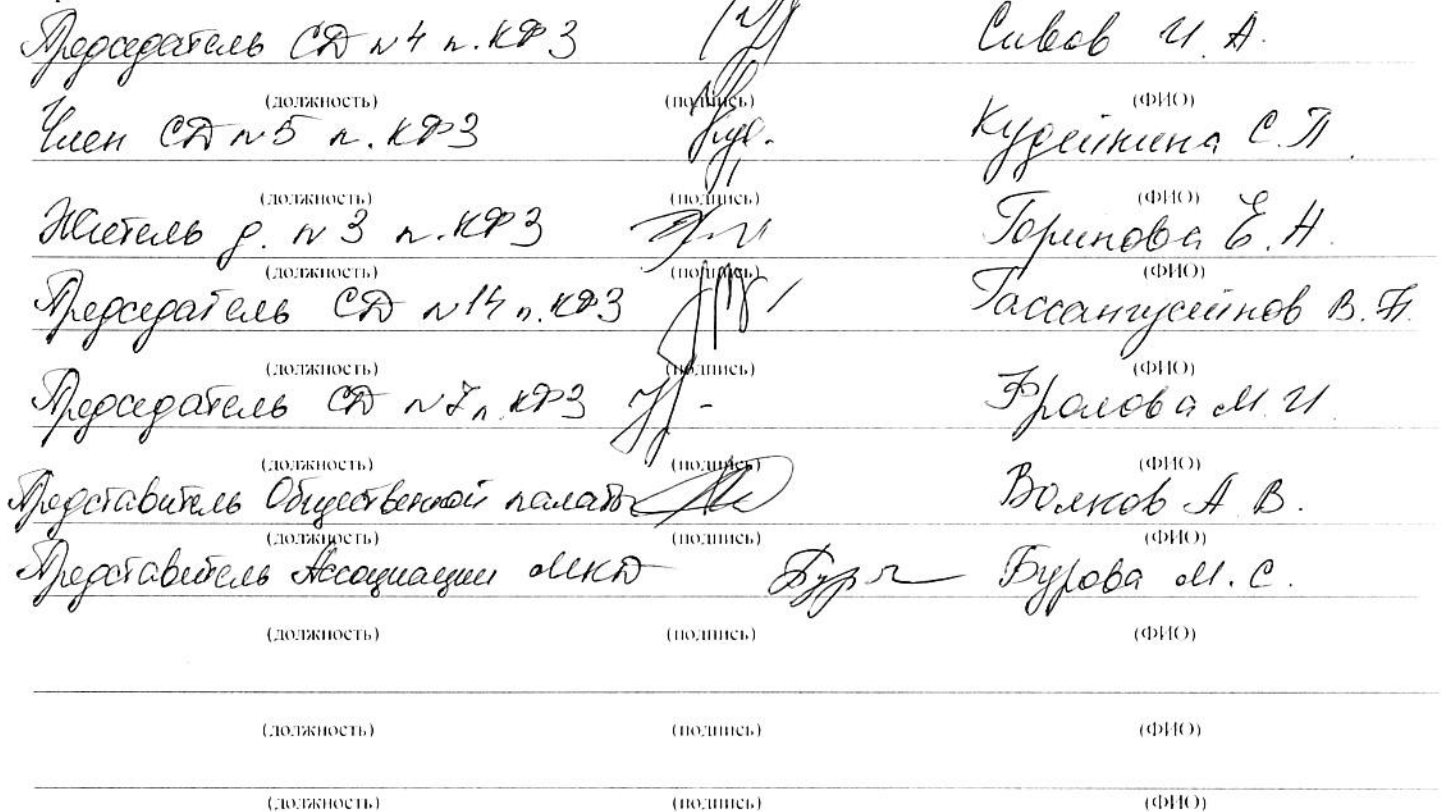 Председатель СД N4 п. КФЗ Сивов И. А.
(должность) (подпись) (ФИО)
Член СД N5 п. КФЗ Куд. Кудейкина С. П.
(должность) (подпись) (ФИО)
Житель д. N 3 п. КФЗ Горинова Е. Н.
(должность) (подпись) (ФИО)
Председатель СД N14 п. КФЗ Гассангусейнов В. Н.
(должность) (подпись) (ФИО)
Председатель СД N7 п. КФЗ Фролова М. И.
(должность) (подпись) (ФИО)
Представитель Общественной палаты Волков А В.
(должность) (подпись) (ФИО)
Представитель Ассоциации МКД Бурова М. С.
(должность) (подпись) (ФИО)
(должность) (подпись) (ФИО)
(должность) (подпись) (ФИО)